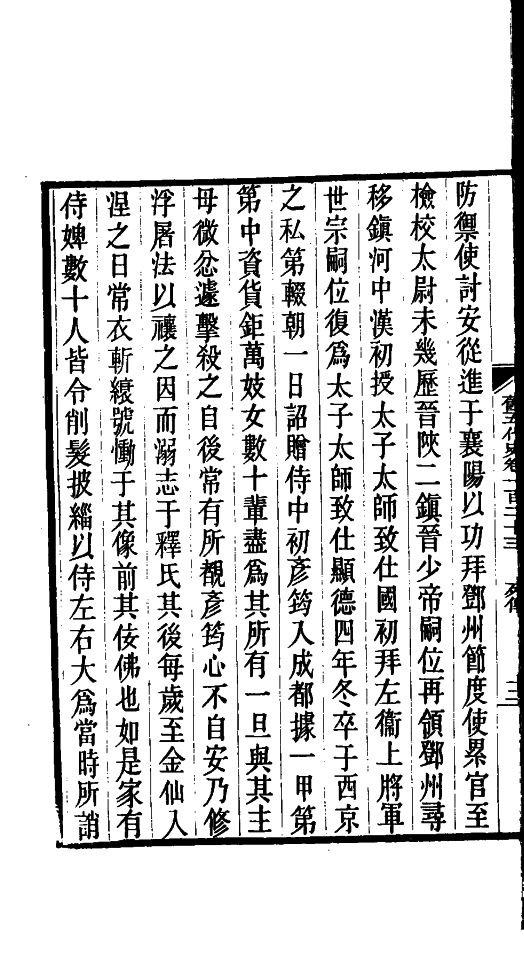 舊五代史卷一百二十三 列傳 三
防禦使討安從進于襄陽以功拜鄧州節度使累官至
檢校太尉未幾歷晉陝二鎮晉少帝嗣位再領鄧州尋
移鎮河中漢初授太子太師致仕國初拜左衞上將軍
世宗嗣位復爲太子太師致仕顯德四年冬卒于西京
之私第輟朝一日詔贈侍中初彥筠入成都據一甲第
第中資貨鉅萬妓女數十輩盡爲其所有一旦與其主
母微忿遽擊殺之自後常有所覩彥筠心不自安乃修
浮屠法以禳之因而溺志于釋氏其後每歲至金仙入
涅之日常衣斬縗號慟于其像前其佞佛也如是家有
侍婢數十人皆令削髮披緇以侍左右大爲當時所誚